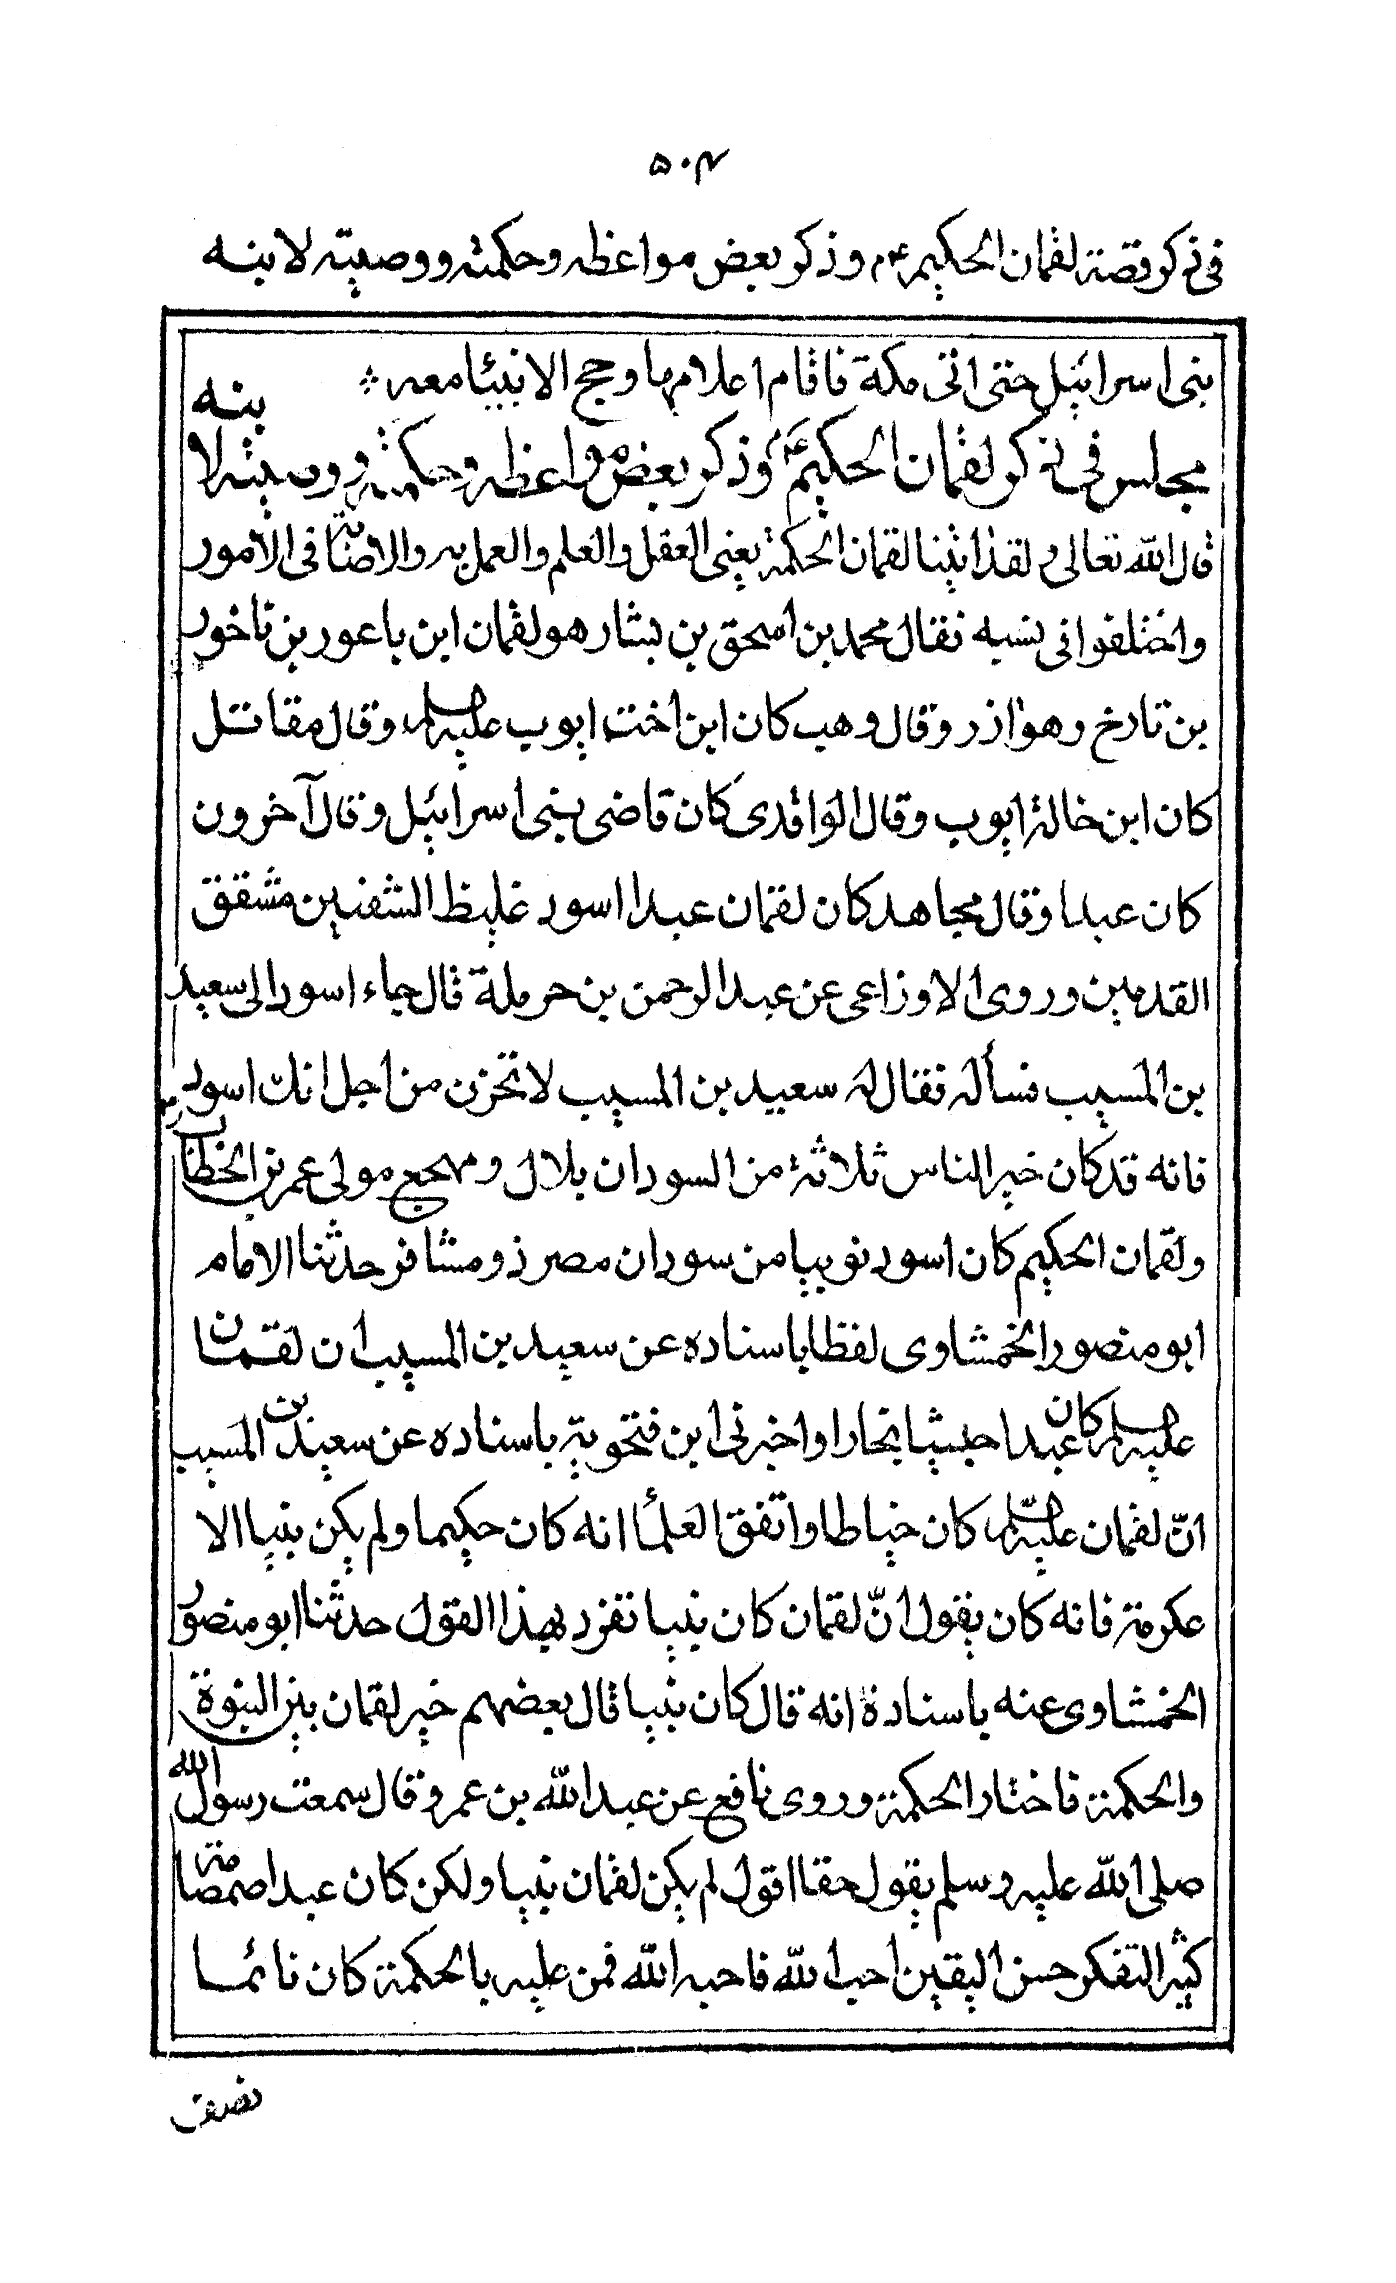 ۵۰۴
في ذكر قصة لقمان الحكيم ع م وذكر بعض مواعظه وحكمته ووصيته لابنه
بنى اسرائيل حتى اتى مكة فاقام اعلامها وحج الانبيا معه
مجلس في ذكر لقمان الحكيم ع م وذكر بعض مواعظه وحكمته ووصيته لابنه
قال الله تعالى ولقد اتينا لقمان الحكمة يعنى العقل والعلم والعمل به والاصابة فى الامور
واختلفوا فى نسبه فقال محمد بن اسحق بن بشار هو لقمان ابن باعور بن ناخور
بن تارخ وهو اذر وقال وهب كان ابن اخت ايوب عليه السلام وقال مقاتل
كان ابن خالة ايوب وقال الواقدى كان قاضى بنى اسرائيل وقال آخرون
كان عبدا وقال مجاهد كان لقمان عبدا اسود غليظ الشفتين مشقق
القدمين وروى الاوزاعى عن عبد الرحمن بن حرملة قال جاء اسود الى سعيد
بن المسيب فسأله فقال له سعيد بن المسيب لا تحزن من اجل انك اسود
فانه قد كان خير الناس ثلاثة من السودان بلال ومهجع مولى عمر بن الخطاب رض
ولقمان الحكيم كان اسود نوبيا من سودان مصر ذو مشافر حدثنا الامام
ابو منصور الخمشاوى لفظا باسناده عن سعيد بن المسيب ان لقمان
عليه السلم كان عبدا حبشيا نجارا واخبرنى ابن فتحوية باسناده عن سعيد بن المسيب
انّ لقمان عليه السلم كان خياطا واتفق العلمأ انه كان حكيما ولم يكن نبيا الا
عكرمة فانه كان يقول انّ لقمان كان نبيا تفرد بهذا القول حدثنا ابو منصور
الخمشاوى عنه باسنادة انه قال كان نبيا قال بعضهم خير لقمان بين النبوة
والحكمة فاختار الحكمة وروى نافع عن عبد الله بن عمر وقال سمعت رسول الله
صلى الله عليه وسلم يقول حقا اقول لم يكن لقمان نبيا ولكن كان عبدا صمصامة
كثير التفكر حسن اليقين احب الله فاحبه الله فمن عليه بالحكمة كان نائما
نصف